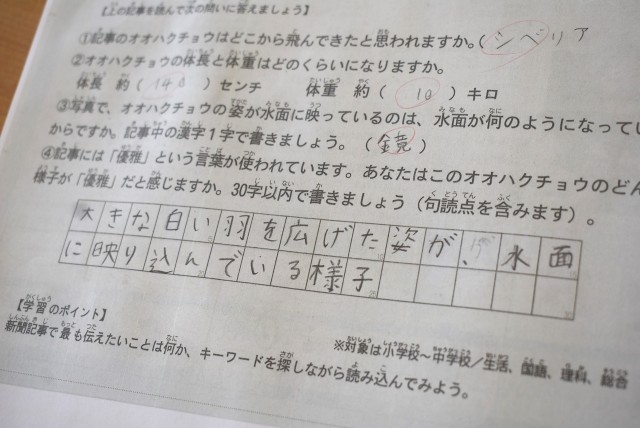 【上の記事を読んで次の問いに答えましょう】
①記事のオオハクチョウはどこから飛んできたと思われますか。（シベリア
②オオハクチョウの体長と体重はどのくらいになりますか。
体長 約（140）センチ 体重 約（10）キロ
③写真で、オオハクチョウの姿が水面に映っているのは、水面が何のようになってい
からですか。記事中の漢字1字で書きましょう。（鏡）
④記事には「優雅」という言葉が使われています。あなたはこのオオハクチョウのどん
様子が「優雅」だと感じますか。30字以内で書きましょう（句読点を含みます）。
大きな白い羽を広げた姿が、水面
に映り込んでいる様子
【学習のポイント】
※対象は小学校～中学校／生活、国語、理科、総合
新聞記事で最も伝えたいことは何か、キーワードを探しながら読み込んでみよう。